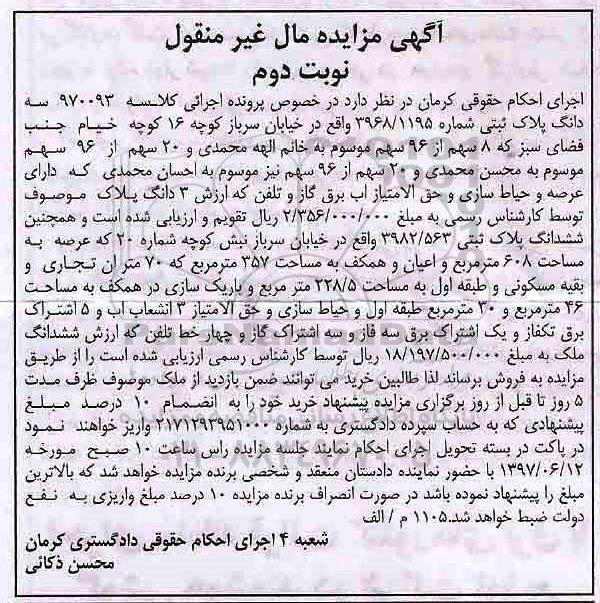 آگهی مزایده مال غیر منقول
نوبت دوم
اجرای احکام حقوقی کرمان در نظر دارد در خصوص پرونده اجرائی کلاسه ۹۷۰۰۹۳ سه
دانگ پلاک ثبتی شماره ۳۹۶۸/۱۱۹۵ واقع در خیابان سرباز کوچه ۱۶ کوچه خیام جنب
فضای سبز که ۸ سهم از ۹۶ سهم موسوم به خانم الهه محمدی و ۲۰ سهم از ۹۶ سهم
موسوم به محسن محمدی و ۲۰ سهم از ۹۶ سهم نیز موسوم به احسان محمدی که دارای
عرصه و حیاط سازی و حق الامتیاز اب برق گاز و تلفن که ارزش ۳ دانگ پلاک موصوف
توسط کارشناس رسمی به مبلغ ۲/۳۵۶/۰۰۰/۰۰۰ ریال تقویم و ارزیابی شده است و همچنین
ششدانگ پلاک ثبتی ۳۹۸۲/۵۶۳ واقع در خیابان سرباز نبش کوچه شماره ۲۰ که عرصه به
مساحت ۶۰۸ مترمربع و اعیان و همکف به مساحت ۳۵۷ مترمربع که ۷۰ متر ان تجاری و
بقیه مسکونی و طبقه اول به مساحت ۲۲۸/۵ متر مربع و باریک سازی در همکف به مساحت
۴۶ مترمربع و ۳۰ مترمربع طبقه اول و حیاط سازی و حق الامتیاز ۳ انشعاب اب و ۵ اشتراک
برق تکفاز و یک اشتراک برق سه فاز و سه اشتراک گاز و چهار خط تلفن که ارزش ششدانگ
ملک به مبلغ ۱۸/۱۹۷/۵۰۰/۰۰۰ ریال توسط کارشناس رسمی ارزیابی شده است را از طریق
مزایده به فروش برساند لذا طالبین خرید می توانند ضمن بازدید از ملک موصوف ظرف مدت
۵ روز تا قبل از روز برگزاری مزایده پیشنهاد خرید خود را به انضمام ۱۰ درصد مبلغ
پیشنهادی که به حساب سپرده دادگستری به شماره ۲۱۷۱۲۹۳۹۵۱۰۰۰ واریز خواهند نمود
در پاکت در بسته تحویل اجرای احکام نمایند جلسه مزایده راس ساعت ۱۰ صبح مورخه
۱۳۹۷/۰۶/۱۲ با حضور نماینده دادستان منعقد و شخصی برنده مزایده خواهد شد که بالاترین
مبلغ را پیشنهاد نموده باشد در صورت انصراف برنده مزایده ۱۰ درصد مبلغ واریزی به نفع
دولت ضبط خواهد شد.۱۱۰۵ م / الف
شعبه ۴ اجرای احکام حقوقی دادگستری کرمان
محسن ذکائی